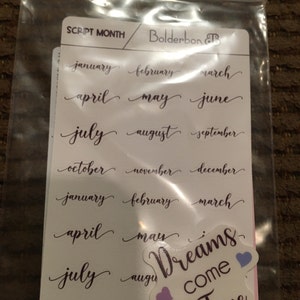 SCRIPT MONTH
january february march
april may june
july august september
october november december
january february march
april may
july
Dreams
come